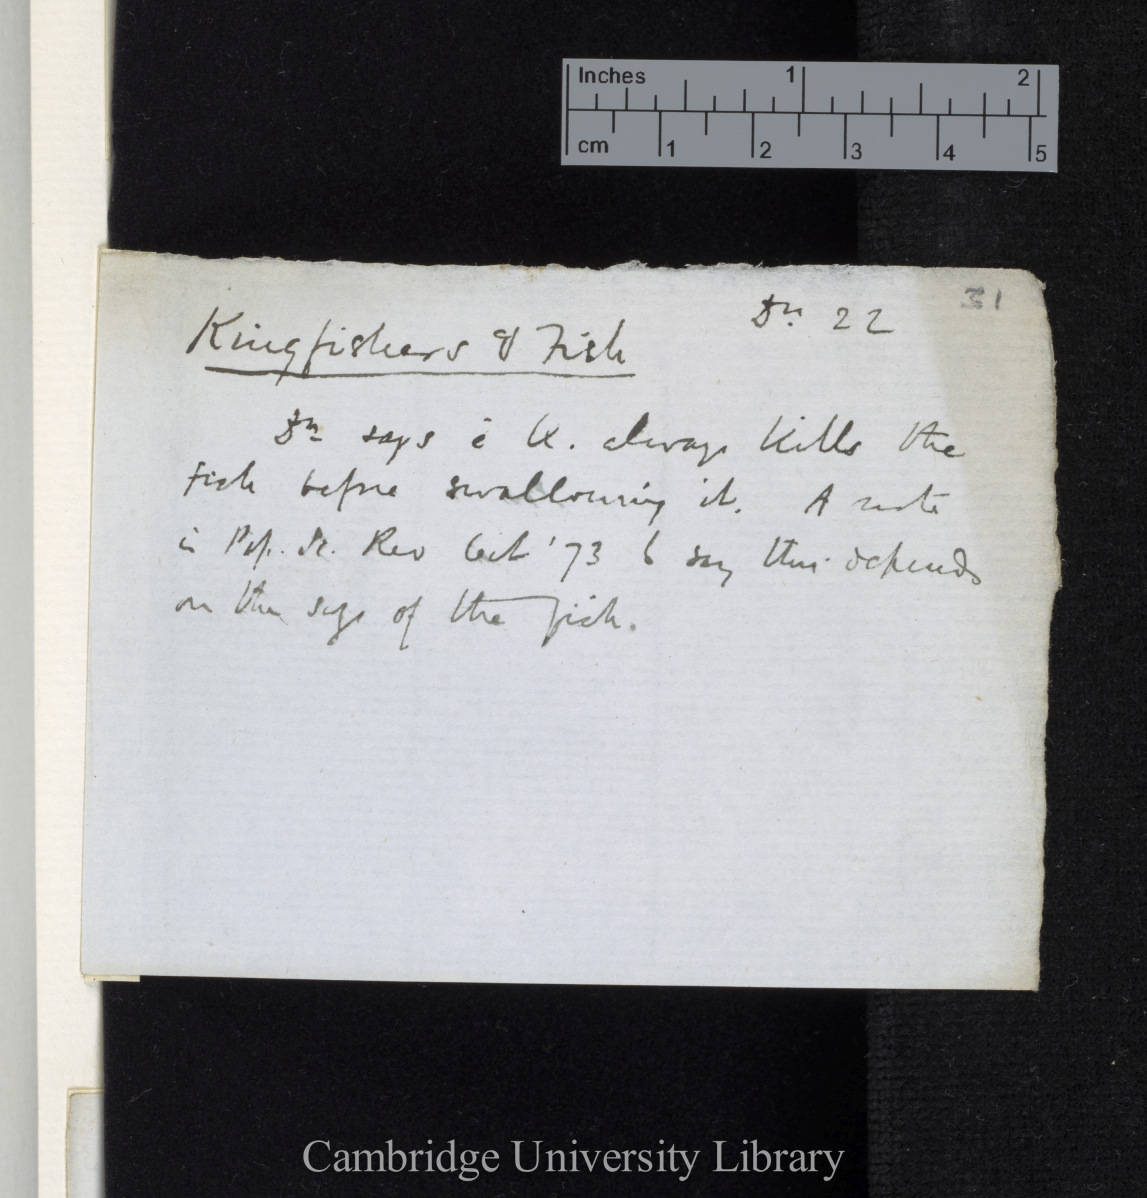 Inches 1 2
cm 1 2 3 4 5
31
Dn 22
Kingfishers & Fish
Dn says K. always kills the
fish before swallowing it. A note
in Pop. Sc. Rev Oct '73 says this depends
on the size of the fish.
Cambridge University Library